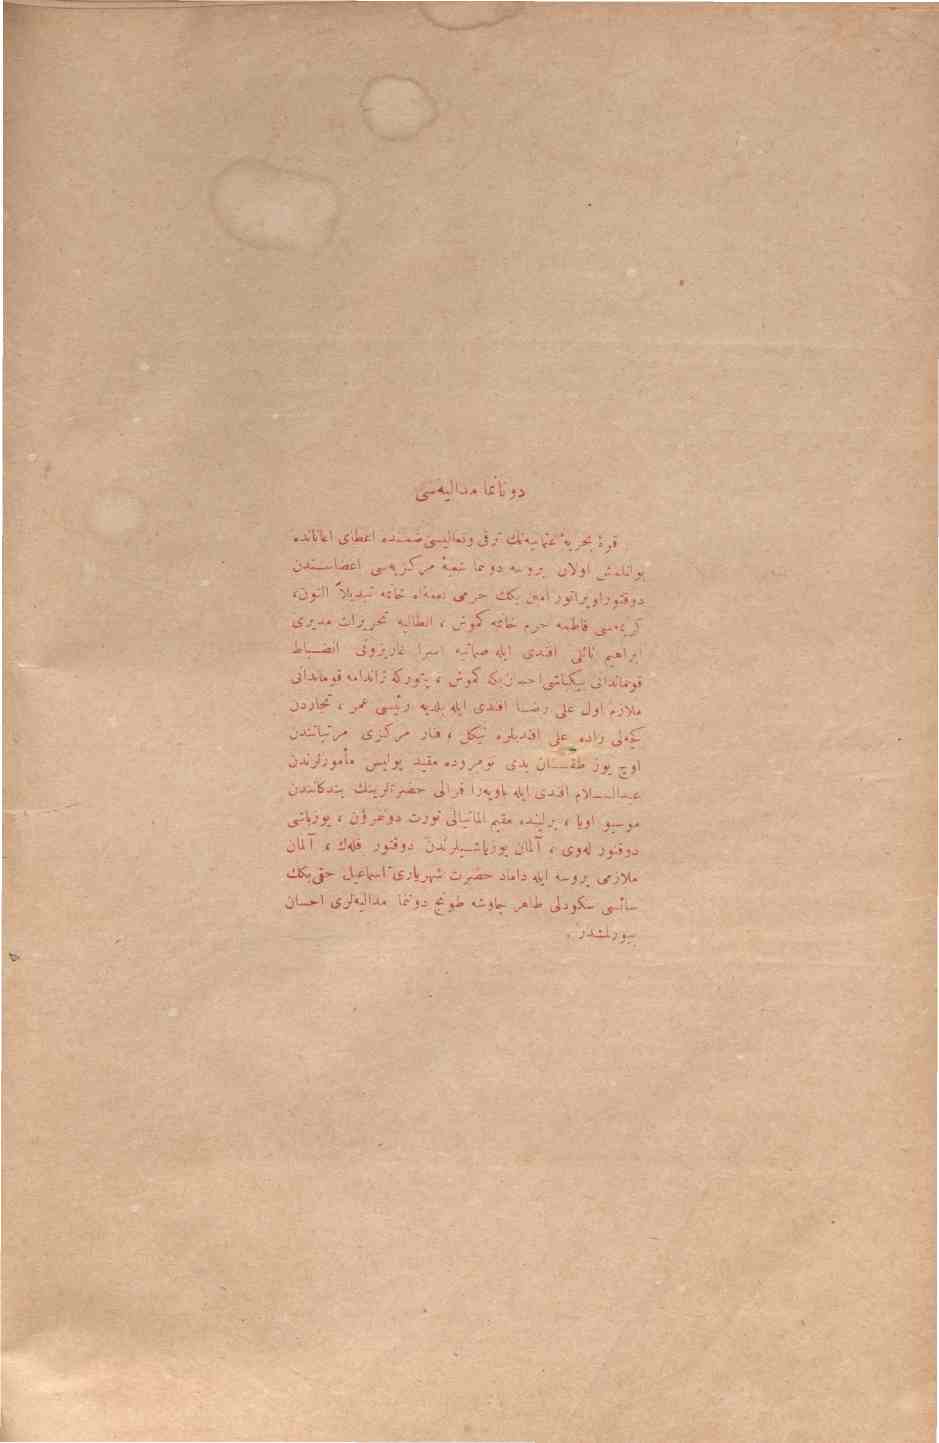 دونانما مدالیه‌سی
قوهٔ بحریهٔ عثمانیه‌نك ترقی وتعالیسی ضمننده اعطای اعاناتده
بولنمش اولان بروسه دوننما شعبهٔ مركزیه‌سی اعضاسندن
دوقتور اوپراتور امین بكك حرمی نعمت خانمه تبدیلاً التون،
كریمه‌سی فاطمه خرم خانمه كموش، انطالیه تحریرات مدیری
ابراهیم نائلی افندی ایله صماتیه اسرا غارنیزونی انضباط
قوماندانی بیكباشی احسان بكه كموش، پتوركه ژاندارمه قوماندانی
ملازم اول علی رضا افندی ایله بلدیه رئیسی عمر، تجاردن
كچه‌لی زاده علی افندیلره نیكل، فنار مركزی مرتباتندن
اوچ یوز طقسان یدی نومروده مقید پولیس مأمورلرندن
عبدالسلام افندی ایله باویه‌را قرالی حضرتلرینك بندكانندن
موسیو اویا، برلینده مقیم المانیالی قورت دوغرون، یوزباشی
دوقتور له‌وی، آلمان یوزباشیلرندن دوقتور فله‌ك، آلمان
ملازمی بروسه ایله داماد حضرت شهریاری اسماعیل حقی بكك
سائسی سكودلی طاهر چاوشه طونج دوننما مدالیه‌لری احسان
بیورلمشدر.